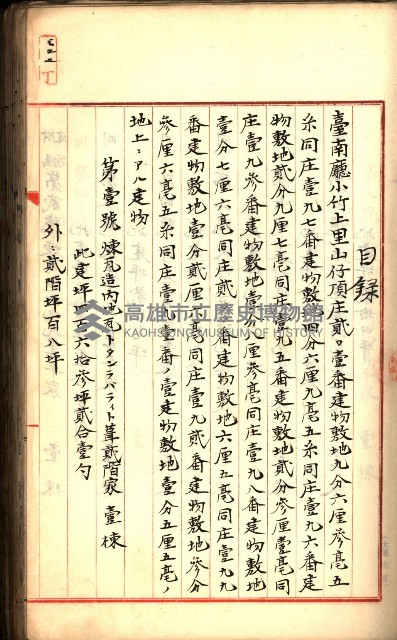 目録
臺南廳小竹上里山仔頂庄貳〇壹番建物敷地九分六厘參毫五
糸同庄壹九七番建物敷地四分六厘九毫五糸同庄壹九六番建
物敷地貳分九厘七毫同庄壹九五番建物敷地貳分參厘壹毫同
庄壹九參番建物敷地壹分八厘參毫同庄壹九八番建物敷地
壹分七厘六毫同庄貳〇〇番建物敷地六厘五毫同庄壹九九
番建物敷地壹分貳厘 毫同庄壹九貳番建物敷地參分
參厘六毫五糸同庄 壹番ノ壹建物敷地壹分五厘五毫ノ
地上ニアル建物
第壹號煉瓦造內地瓦トタンラバライト葺貳階家 壹棟
此建坪四百六拾參坪貳合壹勺
外ニ貳階坪百八坪
高雄市立歷史博物館
KAOHSIUNG MUSEUM OF HISTORY